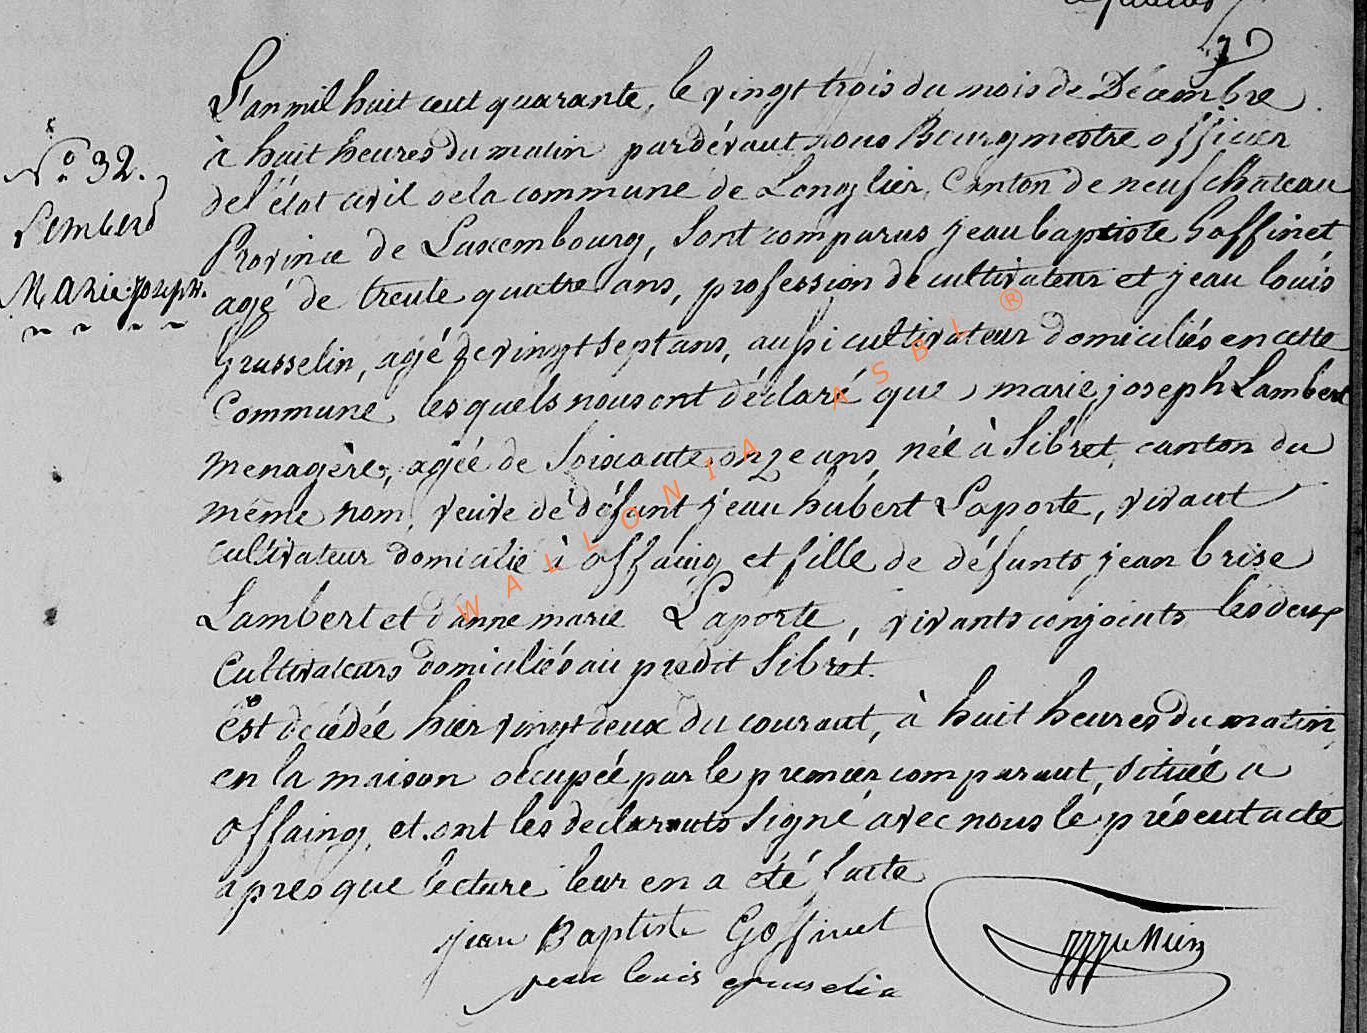 L'an mil huit cent quarante, le vingt trois du mois de Décembre
à huit heures du matin pardévant nous Bourgmestre officier
N.o 32.
de l'état civil de la commune de Longlier, Canton de neufchateau
Lambert
Province de Luxembourg, sont comparus jean baptiste Goffinet
Marie Joseph.
agé de trente quatre ans, profession de cultivateur et jean louis
Grusselin, agé de vingt sept ans, aussi cultivateur domiciliés en cette
Commune, lesquels nous ont déclaré que marie joseph Lambert
menagère, agée de Soixante onze ans, née à Sibret, canton du
même nom, veuve de défunt jean hubert Laporte, vivant
cultivateur domicilié à offaing et fille de défunts jean brise
Lambert et d'anne marie Laporte, vivants conjoints les deux
Cultivateurs domiciliés au predit Sibret.
est décédée hier vingt deux du courant, à huit heures du matin
en la maison occupée par le premier comparant, située a
offaing, et ont les déclarants signé avec nous le présent acte
apres que lecture leur en a été faite
jean Baptiste Goffinet
jean louis gruselin
WALLONIA ASBL ®